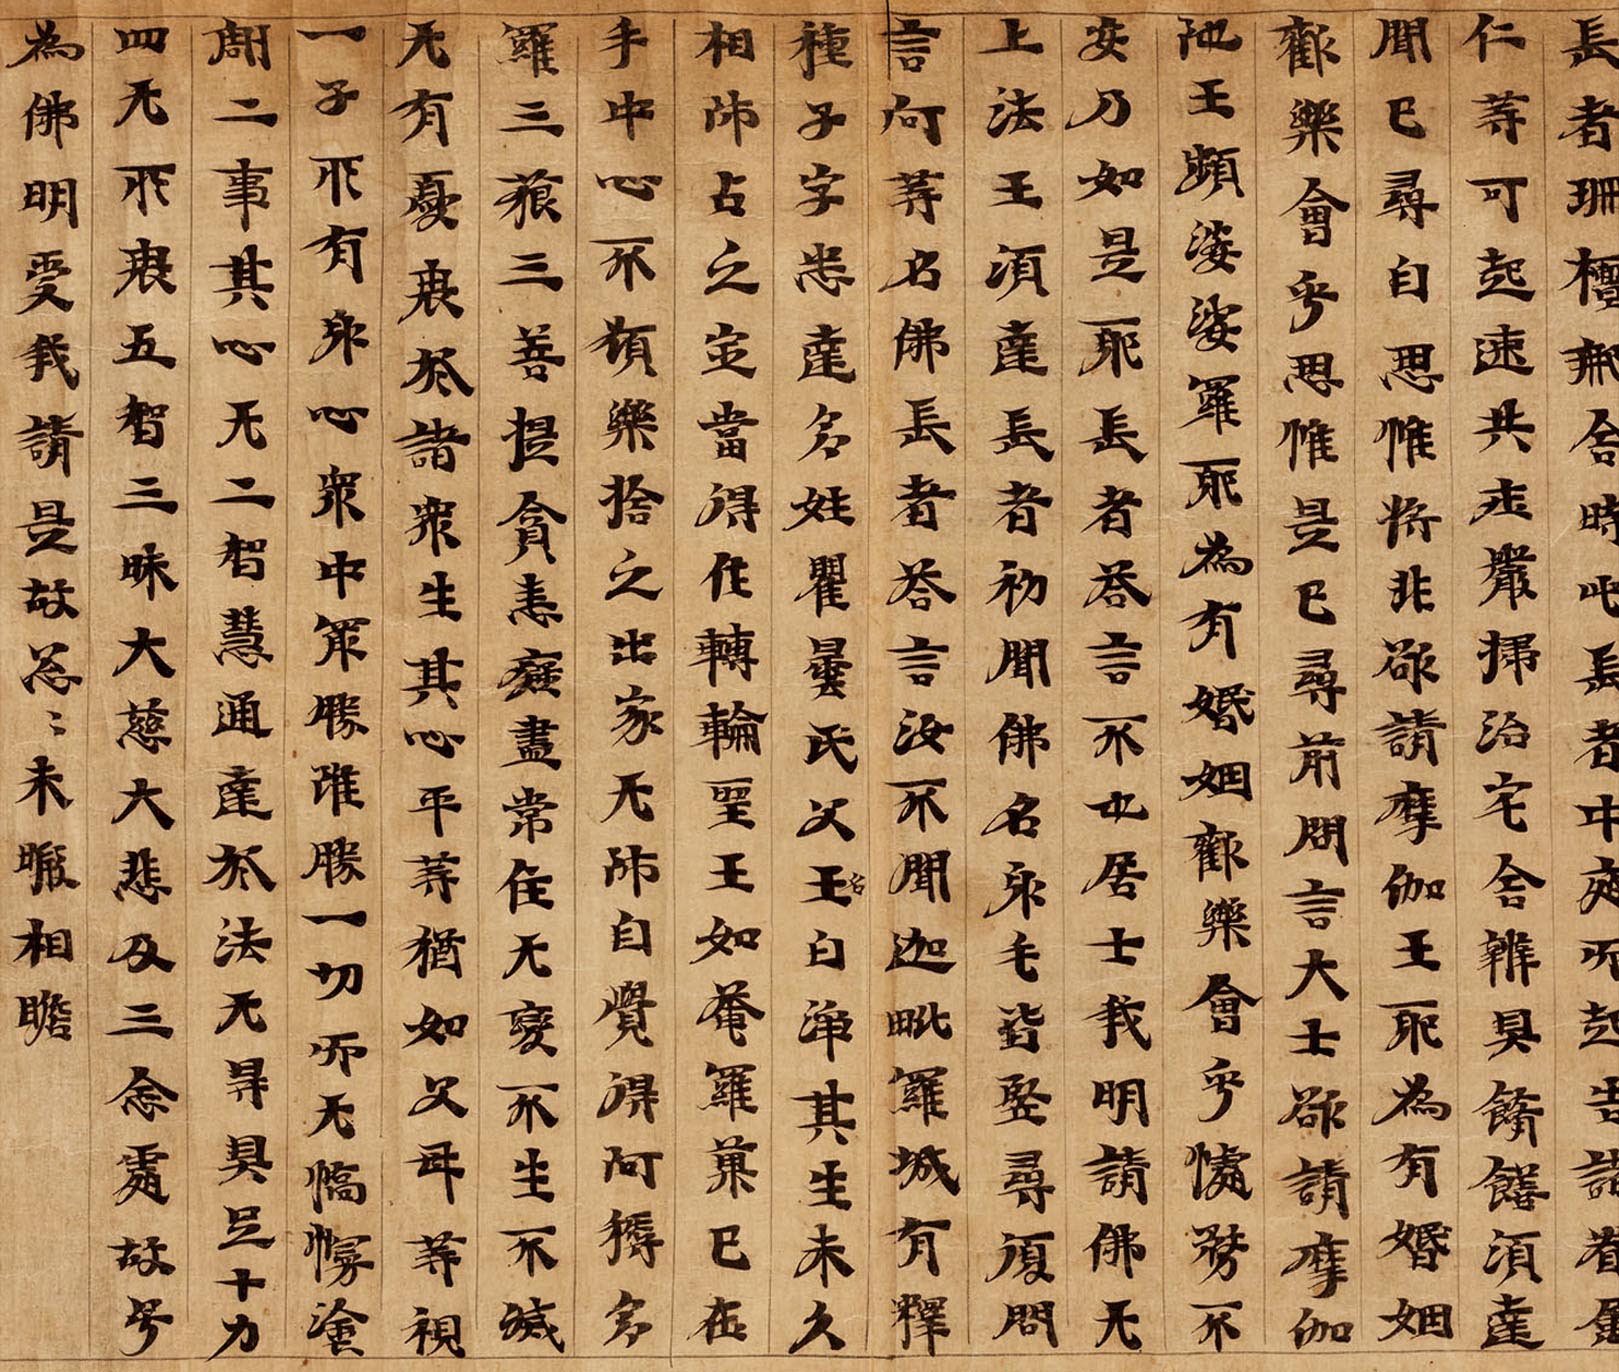 長者珊檀那舍時此長者中夜而起告諸眷屬
仁等可起速共庄嚴掃治宅舍辨具餚饍須達
聞已尋自思惟將非欲請摩伽王耶為有婚姻
歡樂會乎思惟是已尋前問言大士欲請摩伽
陁王頻婆娑羅耶為有婚姻歡樂會乎務不
安乃如是耶長者答言不也居士我明請佛无
上法王須達長者初聞佛名身毛皆竪尋復問
言何等名佛長者答言汝不聞迦毗羅城有釋
種子字悉達多姓瞿曇氏父王名白淨其生未久
相師占之定當得作轉輪聖王如菴羅菓已在
手中心不願樂捨之出家无師自覺得阿耨多
羅三藐三菩提貪恚癡盡常住无變不生不滅
无有憂畏於諸衆生其心平等猶如父母等視
一子所有身心衆中㝡勝雖勝一切而无憍慢塗
割二事其心无二智慧通達於法无㝵具足十力
四无所畏五智三昧大慈大悲及三念處故号
為佛明受我請是故忩〻未暇相瞻